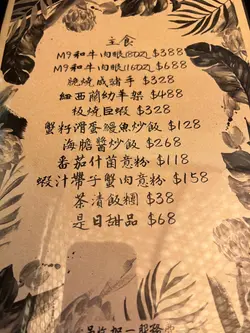 主食
M9和牛肉眼(8OZ) $388
M9和牛肉眼(16OZ) $688
燒咸豬手 $328
紐西蘭幼羊架 $488
板燒巨蝦 $328
蟹籽滑蛋鰻魚炒飯 $128
海膽醬炒飯 $268
番茄什菌意粉 $118
蝦汁帶子蟹肉意粉 $158
茶漬飯糰 $38
是日甜品 $68
加一服務